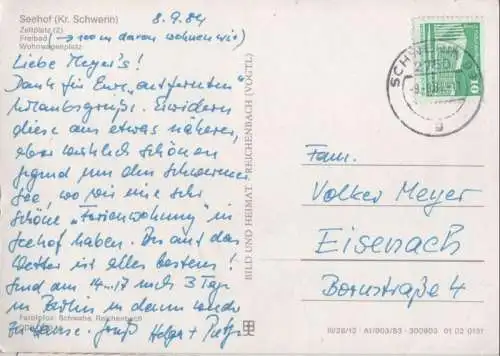 Seehof (Kr. Schwerin)
Zeltplatz (2)
Freibad
Wohnwagenplatz
8.9.84
(→ 100 m davon wohnen wir)
Liebe Meyer's!
Dank für Eure „entfernten"
Urlaubsgrüße. Erwidern
diese aus etwas näheren,
aber wirklich schönen
Gegend um den Schweriner
See, wo wir eine sehr
schöne „Ferienwohnung" in
Seehof haben. Bis auf das
Wetter ist alles bestens!
Sind am 14.-17 noch 3 Tage
in Berlin u. dann wieder
zu Hause. Gruß Helga +
Farbfotos: Schwabe, Reichenbach
BILD UND HEIMAT REICHENBACH (VOGTL)
SCHWERIN
10
Fam.
Volker Meyer
Eisenach
Bornstraße 4
III/26/13 A1/903/83 300903 01 02 0131